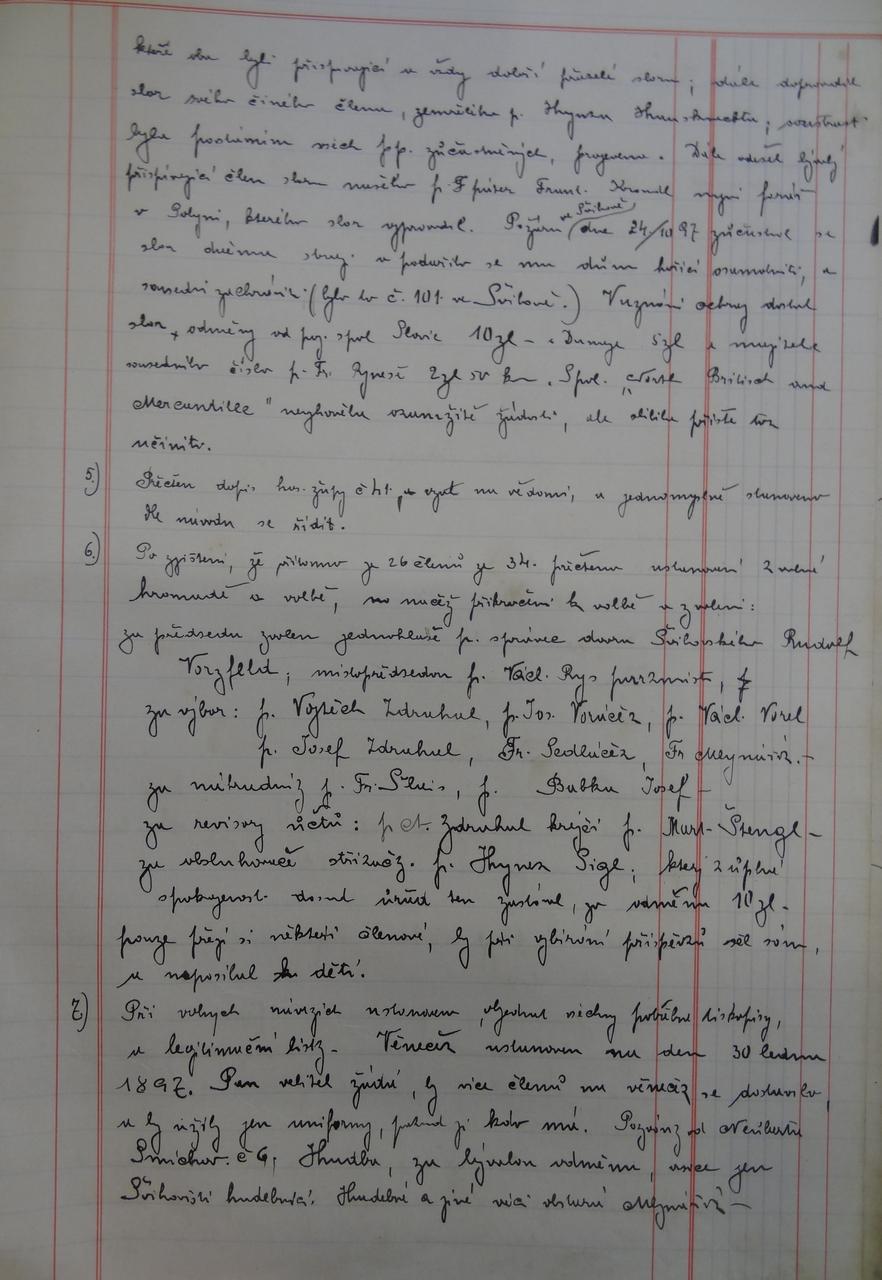 kteří oba byli přispívající a vždy dobří přátelé sboru; dále doprovodil
sbor svého činého člena, zemřelého p. Hynka ; soustrast
byla povstáním všech p.p. zúčastněných, projevena. Dále odešel bývalý
přispívající člen sboru našeho p. Frant. nyní farář
v Polyni, kterého sbor vyprovodil. Požáru ve Švihově dne 24/10 97 zúčastnil se
sbor a podařilo se mu dům hořící osamotniti, a
sousední zachrániti (bylo to č. 101 ve Švihově.) V uznání ochrany dostal
sbor odměny od poj. spol Slavie 10 zl – a Dunaje 5 zl a majitele
sousedního čísla p. Fr. 2 zl 50 kr. Spol. „North Britisch and
Mercantille" nevyhověla žádosti, ale slíbila příště tak
učiniti.
5.) Přečten dopis has. župy č 41. a vzat na vědomí, a jednomyslně stanoveno
dle návodu se řídit.
6.) Po zjištění, že přítomno je 26 členů ze 34. přečtena ustanovení z valné
hromadě a volbě, načež přikročeno k volbě a zvoleni:
za předsedu zvolen jednohlasně p. správce dvora Švihovského Rudolf
Vorzfeld; místopředsedou p. Václ. Rys
za výbor: p. Vojtěch Zdruhal, p. Jos. Voráček, p. Václ. Vorel
p. Josef Zdruhal, Fr. Sedláček, Fr Mlynářík. –
za náhradníky p. Fr. , p. Babka Josef –
za revisory účtů: p A. Zdruhal krejčí p. Mart. Štengl –
za obsluhovače stříkaček. p. Hynek Sigl; který z úplné
spokojenosti dosud úřad ten zastával, za odměnu 10 zl –
pouze přejí si někteří členové, by při vybírání příspěvků šel sám,
a neposílal děti.
7.) Při volných návrzích ustanoveno objednat všechny potřebné tiskopisy,
a legitimační lístky – Věneček ustanoven na den 30 ledna
1897. Pan velitel žádá, by více členů na věneček se dostavilo,
a by užily jen uniformy, pokud ji kdo má. Pozvánky od Neuberta
Smíchov. č 6, Hudba, za bývalou odměnu, avšak jen
Švihovští hudebníci. Hudebné a jiné věci obstará Mlynářík –